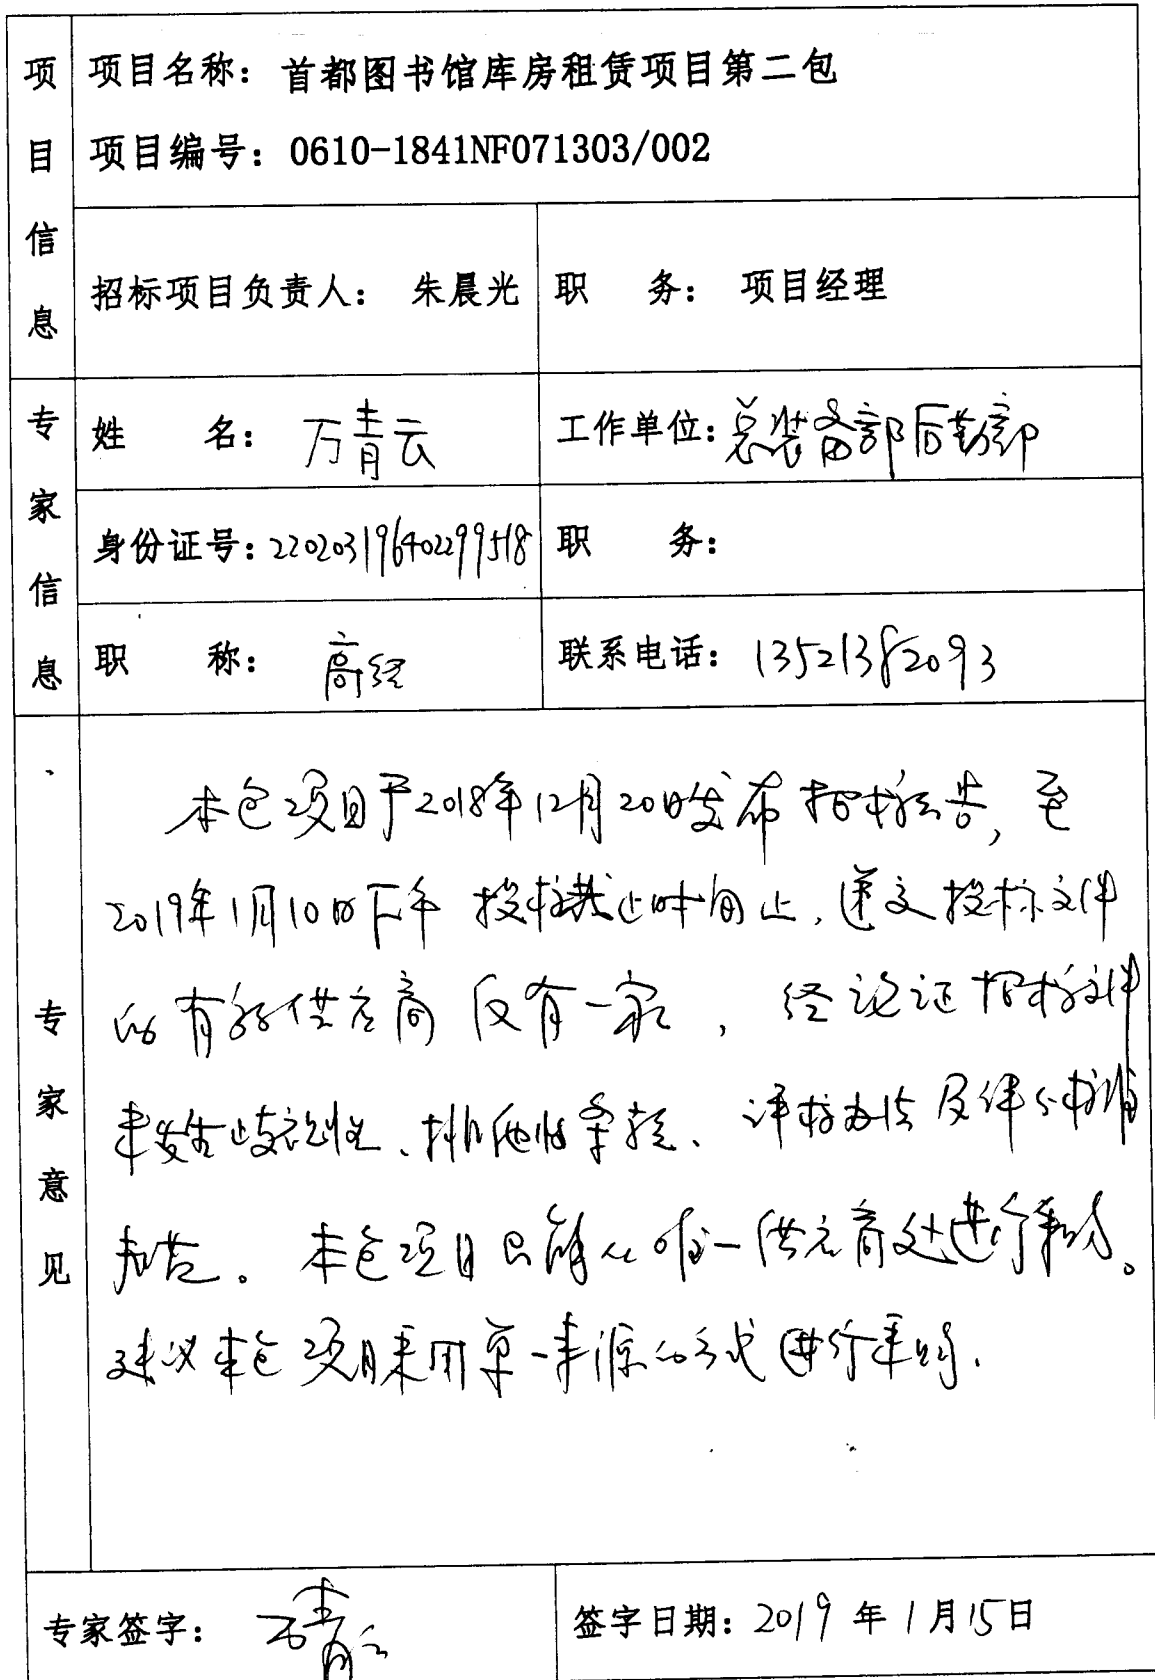 项目信息
项目名称：首都图书馆库房租赁项目第二包
项目编号：0610-1841NF071303/002
招标项目负责人： 朱晨光
职 务： 项目经理
专家信息
姓 名： 万青云
工作单位：总装备部后勤部
身份证号：220203196402299518
职 务：
职 称： 高经
联系电话：13521382093
专家意见
本包项目于2018年12月20日发布招标公告，至
2019年1月10日下午投标截止时间止，递交投标文件
的有效供应商仅有一家，经论证招标文件
未发生歧视性、排他性条款、评标办法及评分标准
规范。本包项目只能从唯一供应商处进行采购。
建议本包项目采用单一来源的方式进行采购.
专家签字： 万青云
签字日期：2019年1月15日